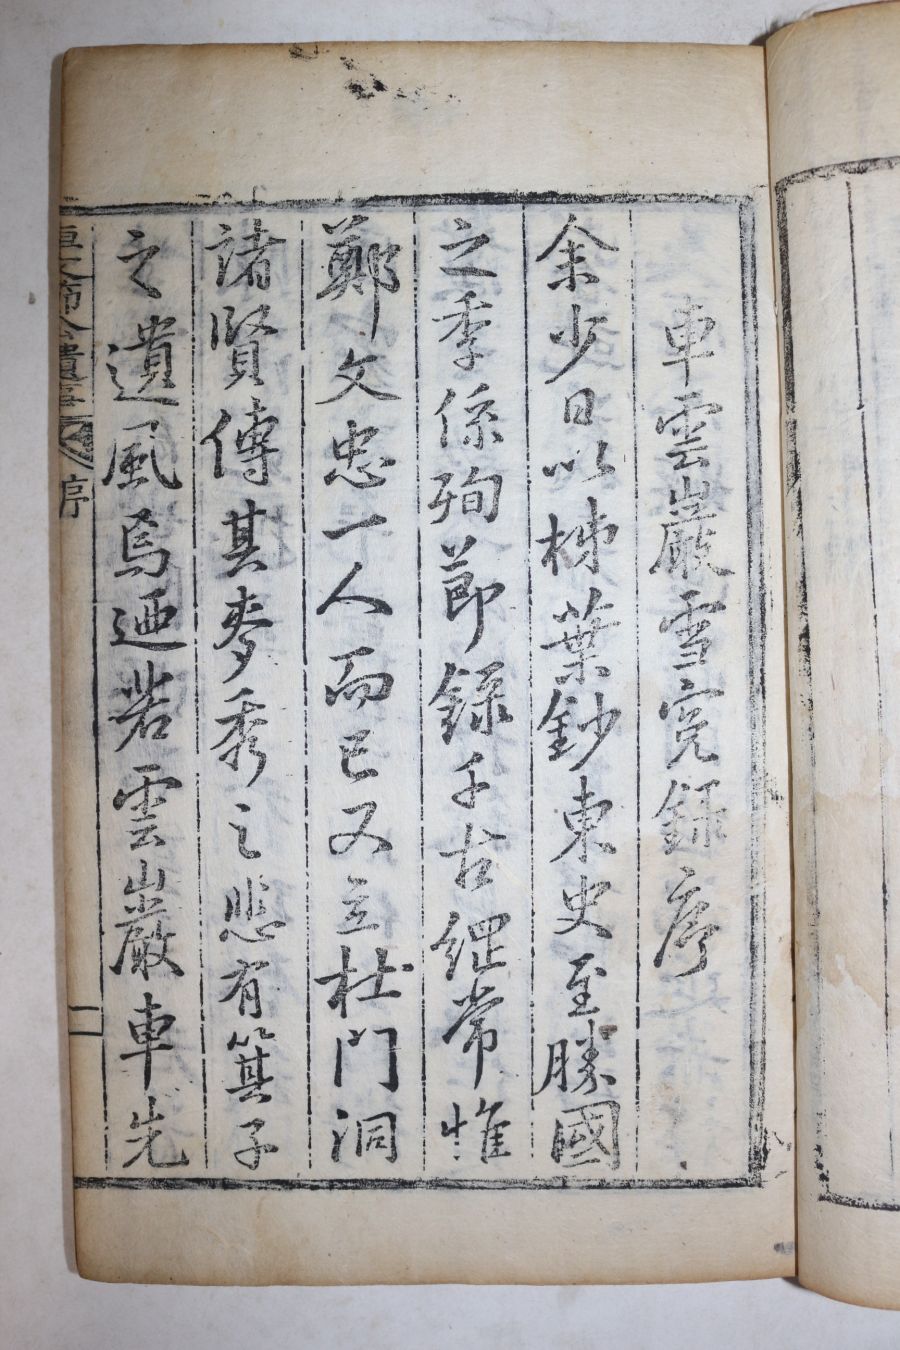 車雲巖雪寃錄序
余少日以柹葉鈔東史至勝國
之季係殉節錄千古綱常惟
鄭文忠一人而已又立杜門洞
諸賢傳其麥秀之悲有箕子
之遺風焉迺若雲巖車先
車文節公遺事 序 一